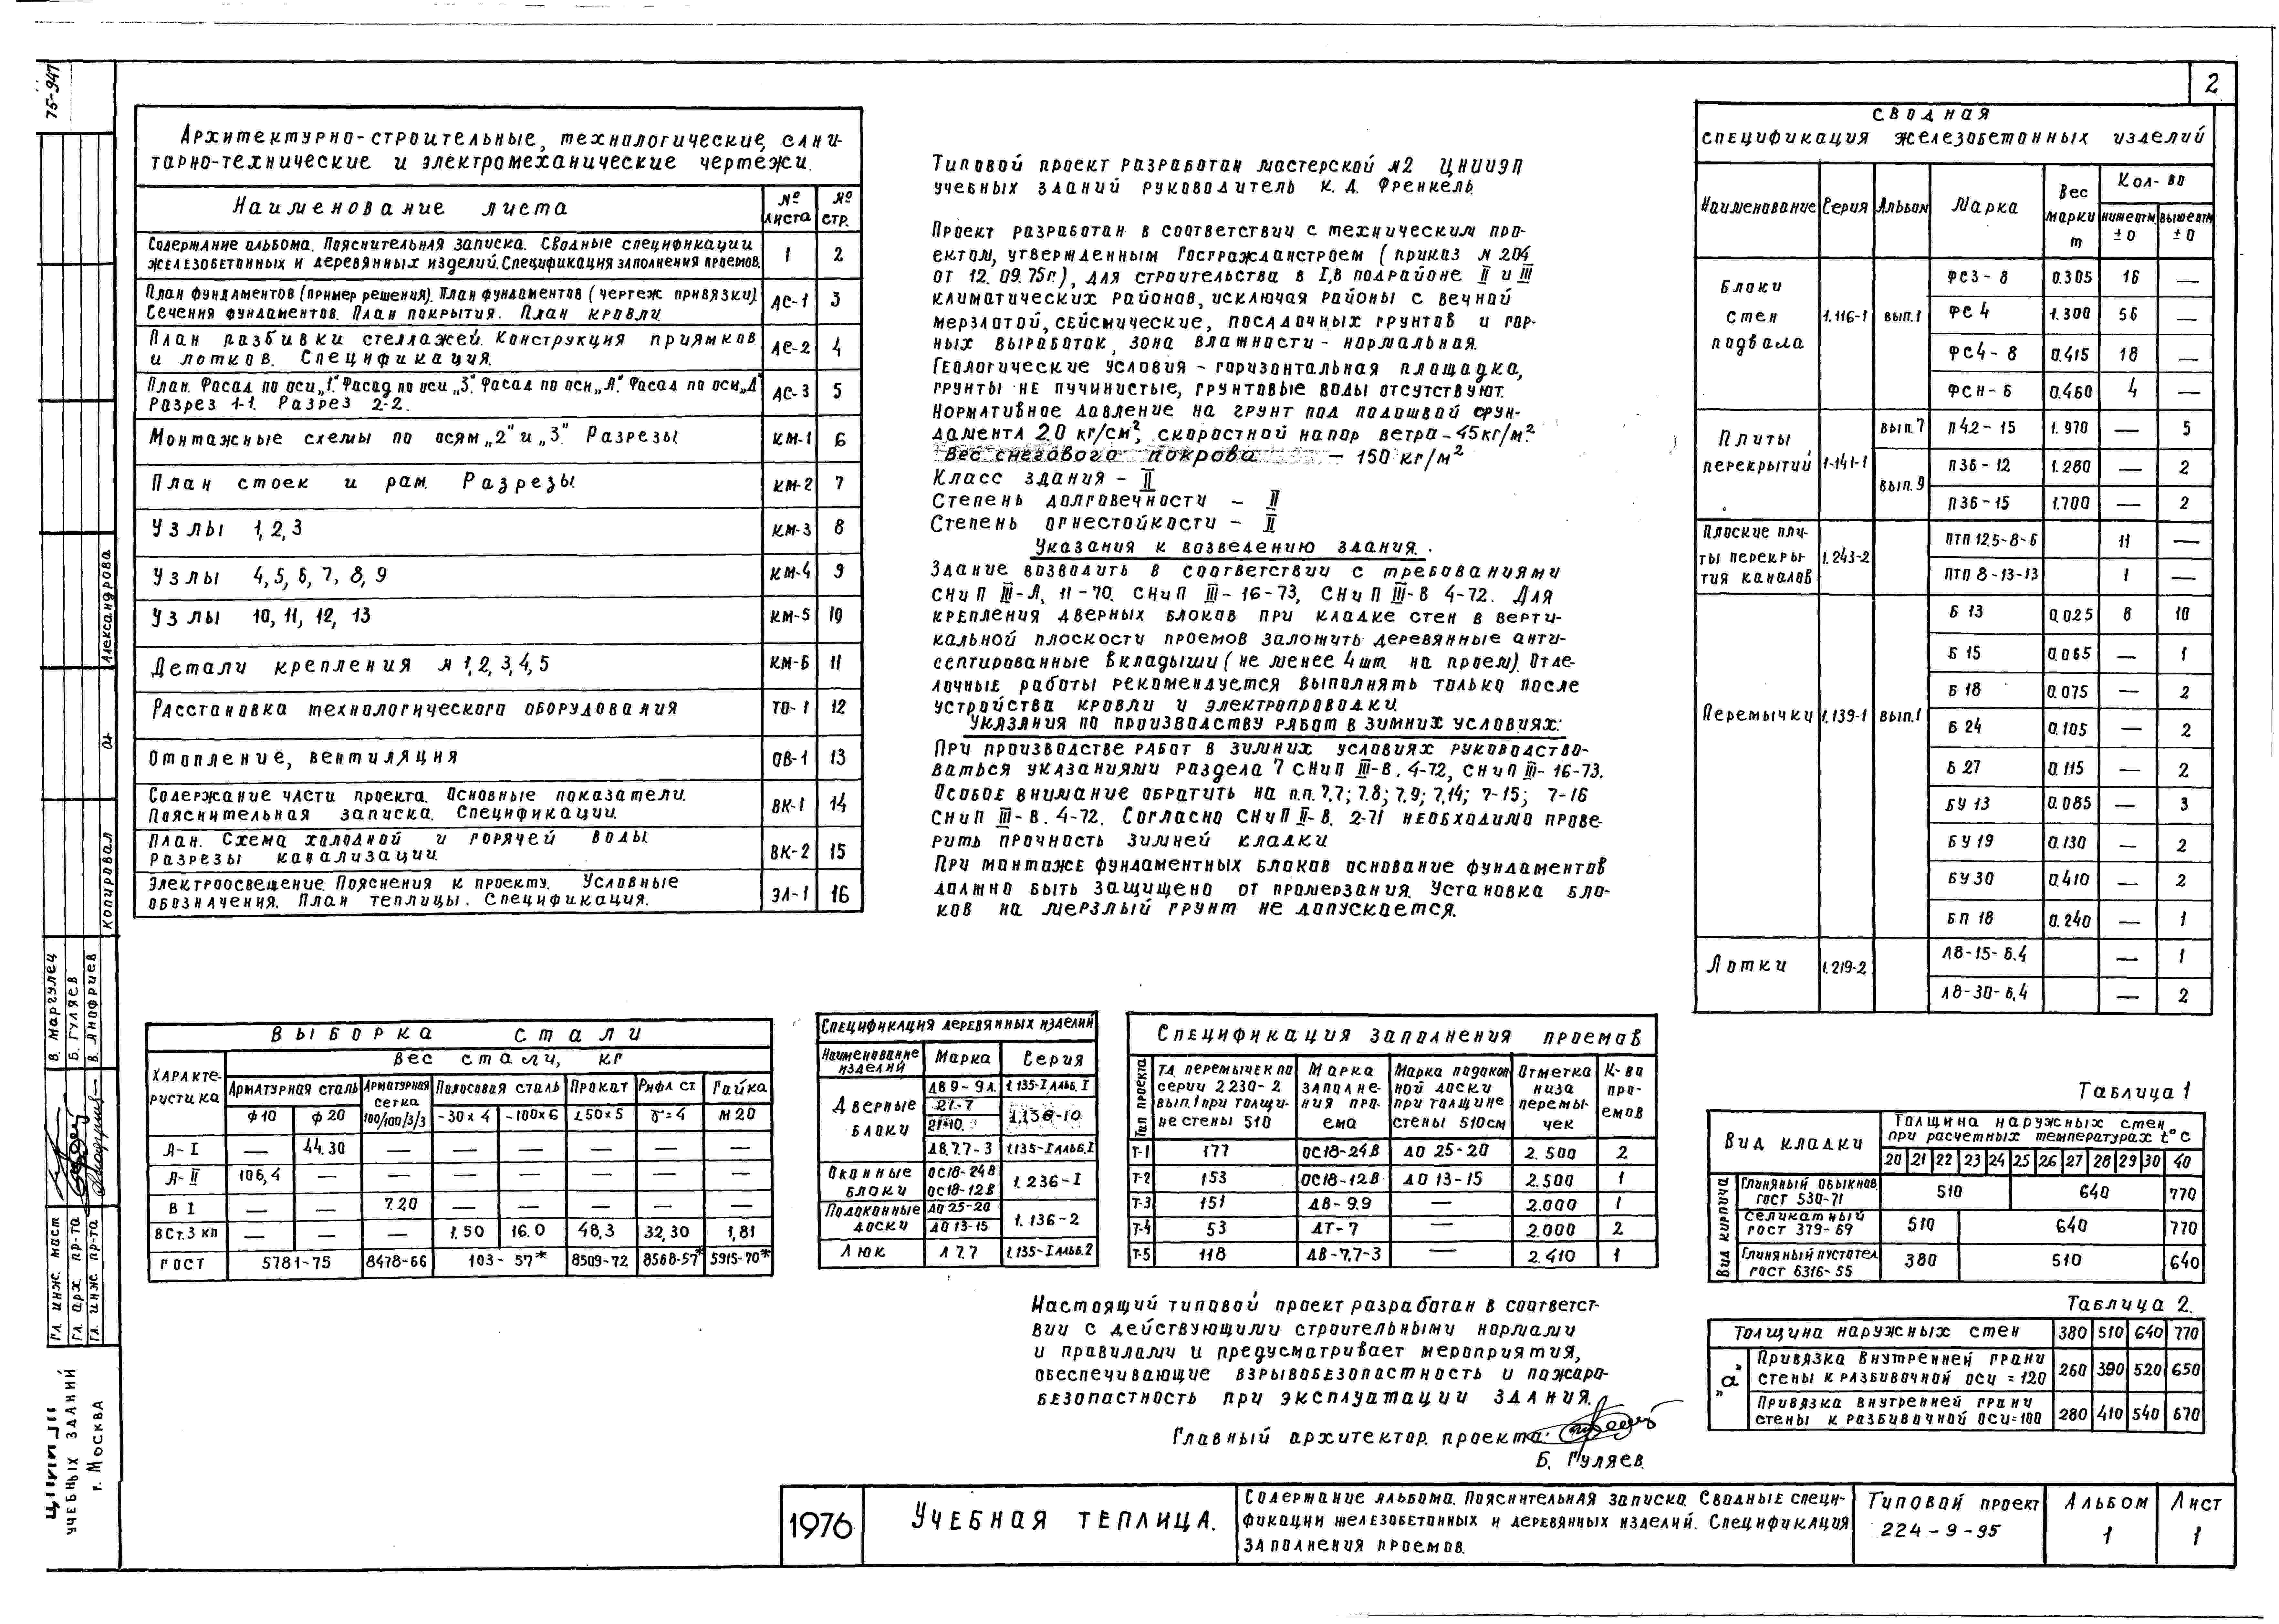 75-947
2
Архитектурно-строительные, технологические, сани-
тарно-технические и электромеханические чертежи.
Наименование листа | № листа | № стр.
Содержание альбома. Пояснительная записка. Сводные спецификации
железобетонных и деревянных изделий. Спецификация заполнения проемов. | 1 | 2
План фундаментов (пример решения). План фундаментов (чертеж привязки)
Сечения фундаментов. План покрытия. План кровли | АС-1 | 3
План разбивки стеллажей. Конструкция приямков
и лотков. Спецификация. | АС-2 | 4
План. Фасад по оси „1". Фасад по оси „3". Фасад по оси „А". Фасад по оси „Д"
Разрез 1-1. Разрез 2-2. | АС-3 | 5
Монтажные схемы по осям „2" и „3". Разрезы | КМ-1 | 6
План стоек и рам. Разрезы | КМ-2 | 7
Узлы 1,2,3 | КМ-3 | 8
Узлы 4,5,6,7,8,9 | КМ-4 | 9
Узлы 10,11,12,13 | КМ-5 | 10
Детали крепления № 1,2,3,4,5 | КМ-6 | 11
Расстановка технологического оборудования | ТО-1 | 12
Отопление, вентиляция | ОВ-1 | 13
Содержание части проекта. Основные показатели.
Пояснительная записка. Спецификации. | ВК-1 | 14
План. Схема холодной и горячей воды.
Разрезы канализации. | ВК-2 | 15
Электроосвещение. Пояснения к проекту. Условные
обозначения. План теплицы. Спецификация. | ЭЛ-1 | 16
Типовой проект разработан мастерской №2 ЦНИИЭП
учебных зданий руководитель К. Д. Френкель
Проект разработан в соответствии с техническим про-
ектом, утвержденным Госгражданстроем (приказ № 204
от 12.09.75г.), для строительства в I,В подрайоне II и III
климатических районов, исключая районы с вечной
мерзлотой, сейсмические, посадочных грунтов и гор-
ных выработок, зона влажности - нормальная.
Геологические условия - горизонтальная площадка,
грунты не пучинистые, грунтовые воды отсутствуют.
Нормативное давление на грунт под подошвой фун-
дамента 2.0 кг/см², скоростной напор ветра - 45кг/м².
Вес снегового покрова — 150 кг/м²
Класс здания - II
Степень долговечности - II
Степень огнестойкости - II
Указания к возведению здания.
Здание возводить в соответствии с требованиями
СНиП III-А, 11-70. СНиП III-16-73, СНиП III-В 4-72. Для
крепления дверных блоков при кладке стен в верти-
кальной плоскости проемов заложить деревянные анти-
септированные вкладыши (не менее 4шт. на проем). Отде-
лочные работы рекомендуется выполнять только после
устройства кровли и электропроводки.
Указания по производству работ в зимних условиях:
При производстве работ в зимних условиях руководство-
ваться указаниями раздела 7 СНиП III-В. 4-72, СНиП III-16-73.
Особое внимание обратить на п.п. 7,7; 7.8; 7,9; 7,14; 7-15; 7-16
СНиП III-В. 4-72. Согласно СНиП II-В. 2-71 необходимо прове-
рить прочность зимней кладки
При монтаже фундаментных блоков основание фундаментов
должно быть защищено от промерзания. Установка бло-
ков на мерзлый грунт не допускается.
Сводная
спецификация железобетонных изделий
Наименование | Серия | Альбом | Марка | Вес марки т | Кол-во
ниже отм. ±0 | выше отм ±0
Блоки стен подвала | 1.116-1 | вып.1 | ФС3-8 | 0.305 | 16 | —
ФС 4 | 1.300 | 56 | —
ФС4-8 | 0.415 | 18 | —
ФСН-6 | 0.460 | 4 | —
Плиты перекрытий | 1-141-1 | вып.7 | П42-15 | 1.970 | — | 5
вып.9 | П36-12 | 1.280 | — | 2
П36-15 | 1.700 | — | 2
Плоские пли-
ты перекры-
тия каналов | 1.243-2 | ПТП 12.5-8-6 | 11 | —
ПТП 8-13-13 | 1 | —
Перемычки | 1.139-1 | вып.1 | Б 13 | 0.025 | 8 | 10
Б 15 | 0.065 | — | 1
Б 18 | 0.075 | — | 2
Б 24 | 0.105 | — | 2
Б 27 | 0.115 | — | 2
БУ 13 | 0.085 | — | 3
БУ 19 | 0.130 | — | 2
БУ30 | 0.410 | — | 2
БП 18 | 0.240 | — | 1
Лотки | 1.219-2 | Л8-15-6.4 | — | 1
Л8-30-6,4 | — | 2
Выборка стали
Характе-
ристика | Вес стали, кг
Арматурная сталь | Арматурная сетка | Полосовая сталь | Прокат | Рифл ст. | Гайка
Ф10 | Ф20 | 100/100/3/3 | -30×4 | -100×6 | L50×5 | δ=4 | М20
А-I | — | 44.30 | — | — | — | — | — | —
А-II | 106,4 | — | — | — | — | — | — | —
В I | — | — | 7.20 | — | — | — | — | —
ВСт.3 кп | — | — | — | 1.50 | 16.0 | 48,3 | 32,30 | 1,81
ГОСТ | 5781-75 | 8478-66 | 103-57* | 8509-72 | 8568-57* | 5915-70*
Спецификация деревянных изделий
Наименование изделий | Марка | Серия
Дверные блоки | ДВ9-9Л. | 1.135-I Альб. I
21-7 | 1.136-10
21-10.
ДВ.7.7-3 | 1.135-I Альб.I
Оконные блоки | ОС18-24В | 1.236-I
ОС18-12В
Подоконные доски | ДО 25-20 | 1.136-2
ДО 13-15
Люк | Л 7.7 | 1.135-I Альб.2
Спецификация заполнения проемов
Тип проекта | т.д. перемычек по серии 2 230-2 вып.1 при толщине стены 510 | Марка заполнения проема | Марка подоконной доски при толщине стены 510см | Отметка низа перемычек | К-во проемов
Т-1 | 177 | ОС18-24В | ДО 25-20 | 2.500 | 2
Т-2 | 153 | ОС18-12В | ДО 13-15 | 2.500 | 1
Т-3 | 151 | ДВ-9.9 | — | 2.000 | 1
Т-4 | 53 | ДТ-7 | — | 2.000 | 2
Т-5 | 118 | ДВ-7,7-3 | — | 2.410 | 1
Таблица 1
Вид кладки | Толщина наружных стен
при расчетных температурах t°С
20 | 21 | 22 | 23 | 24 | 25 | 26 | 27 | 28 | 29 | 30 | 40
Вид кирпича
Глиняный обыкнов. ГОСТ 530-71 | 510 | 640 | 770
Селикатный ГОСТ 379-69 | 510 | 640 | 770
Глиняный пустотел. ГОСТ 6316-55 | 380 | 510 | 640
Таблица 2.
Толщина наружных стен | 380 | 510 | 640 | 770
„а"
Привязка внутренней грани
стены к разбивочной оси = 120 | 260 | 390 | 520 | 650
Привязка внутренней грани
стены к разбивочной оси=100 | 280 | 410 | 540 | 670
Настоящий типовой проект разработан в соответст-
вии с действующими строительными нормами
и правилами и предусматривает мероприятия,
обеспечивающие взрывобезопастность и пожаро-
безопастность при эксплуатации здания.
Главный архитектор проекта:
Б. Гуляев.
1976
Учебная теплица.
Содержание альбома. Пояснительная записка. Сводные специ-
фикации железобетонных и деревянных изделий. Спецификация
заполнения проемов.
Типовой проект
224-9-95
Альбом
1
Лист
1
Александрова
Копировал
В. Маргулец
Б. Гуляев
В. Анофриев
Гл. инж. маст
Гл. арх. пр-та
Гл. инж. пр-та
учебных зданий
г. Москва